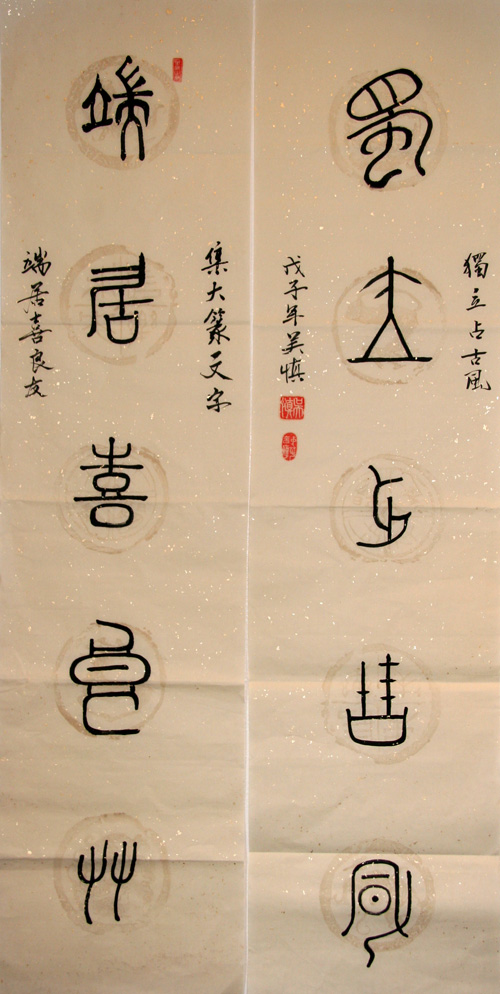 獨立占古風
蜀立占古風
戊子年吴慎
集大篆文字
端居喜良友
端居喜良友